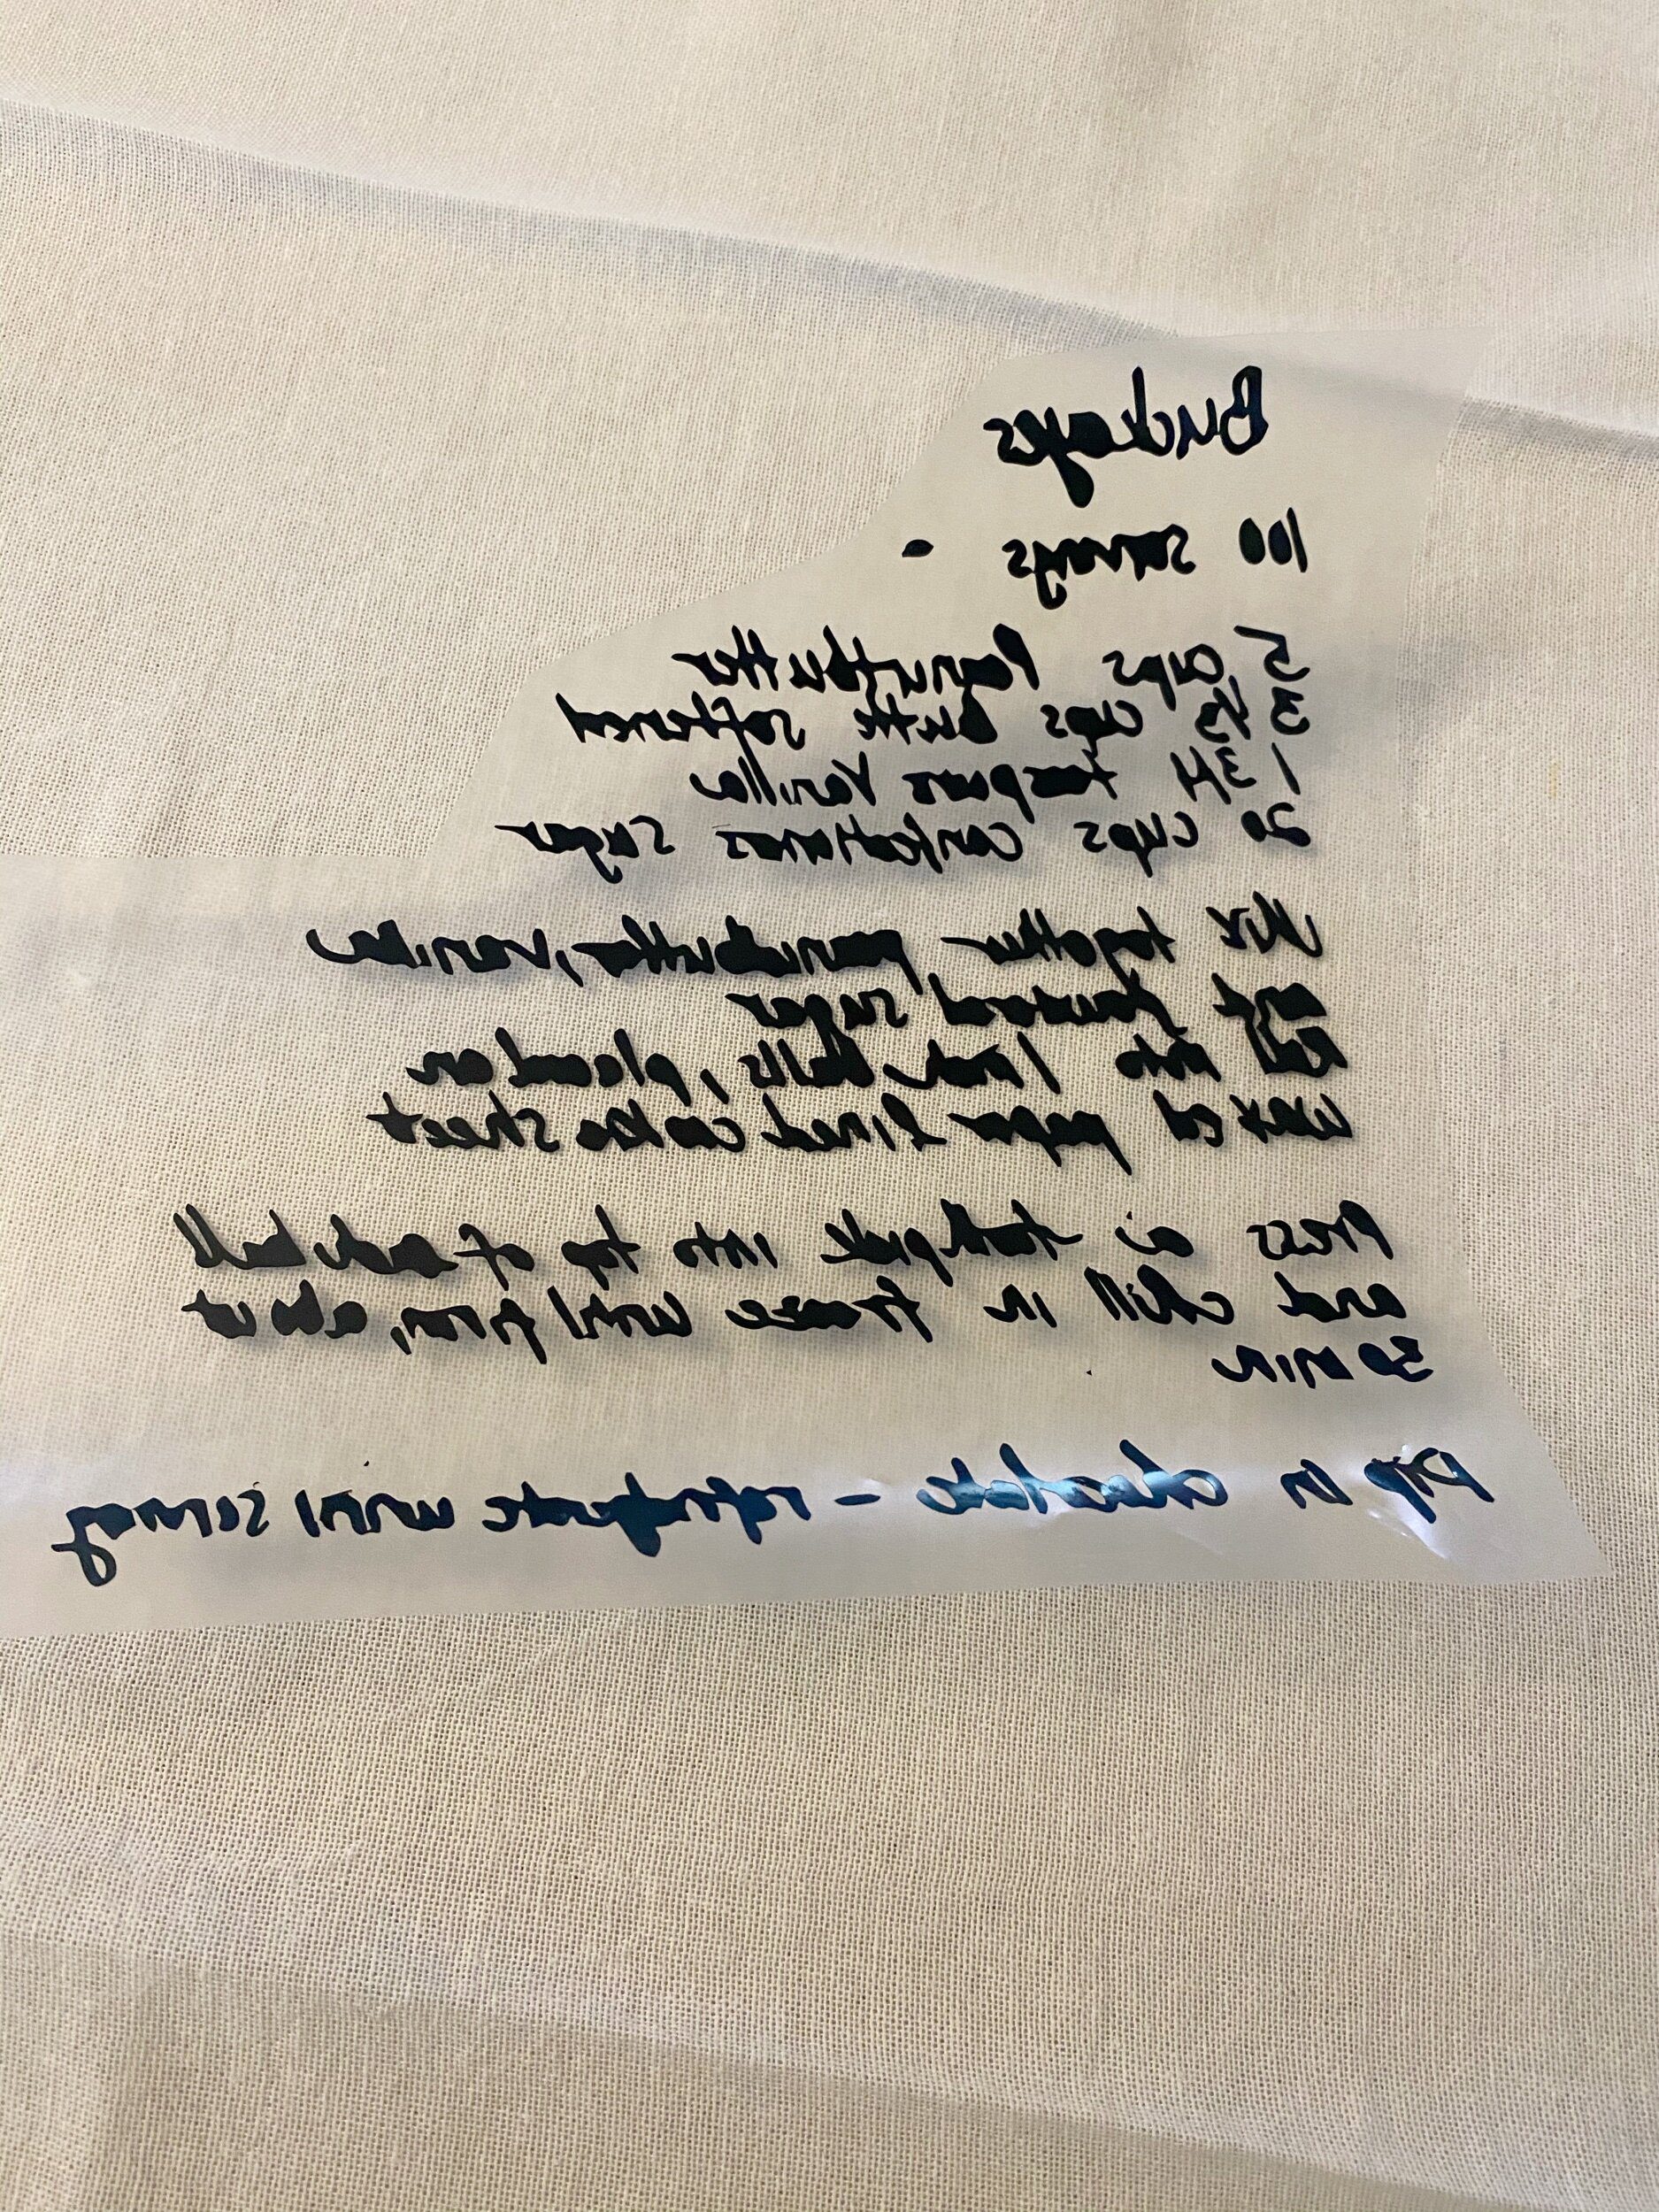 Buckeyes
100 servings -
5 cups Peanutbutter
3 1/3 cups butter softened
1 3/4 teaspoons Vanilla
20 cups confectioners Sugar
Mix together peanutbutter, vanilla
and powdered sugar
Roll into 1 inch balls, placed on
waxed paper lined cookie sheet
Press a toothpick into top of each ball
and chill in freeze until firm, about
30 min
Dip in chocolate - refridgerate until serving